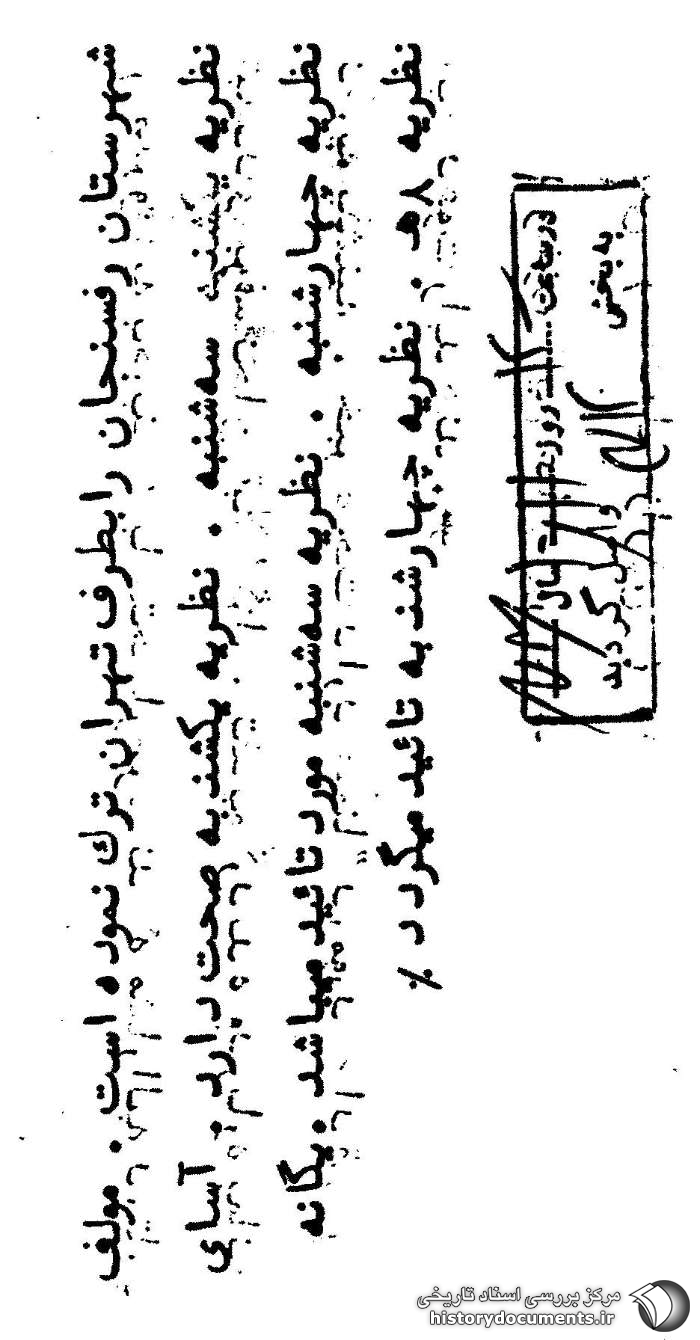 شهرستان رفسنجان رابطرف تهران ترك نموده است . مولف
نظریه یکشنبه سه‌شنبه . نظریه یکشنبه صحت دارد . آسای
نظریه چهارشنبه . نظریه سه‌شنبه مورد تائید میباشد . یگانه
نظریه ۸ه‍ . نظریه چهارشنبه تائید میگردد ٪
در ساعت روز سال
به بخش واصل گردید
مرکز بررسی اسناد تاریخی
historydocuments.ir